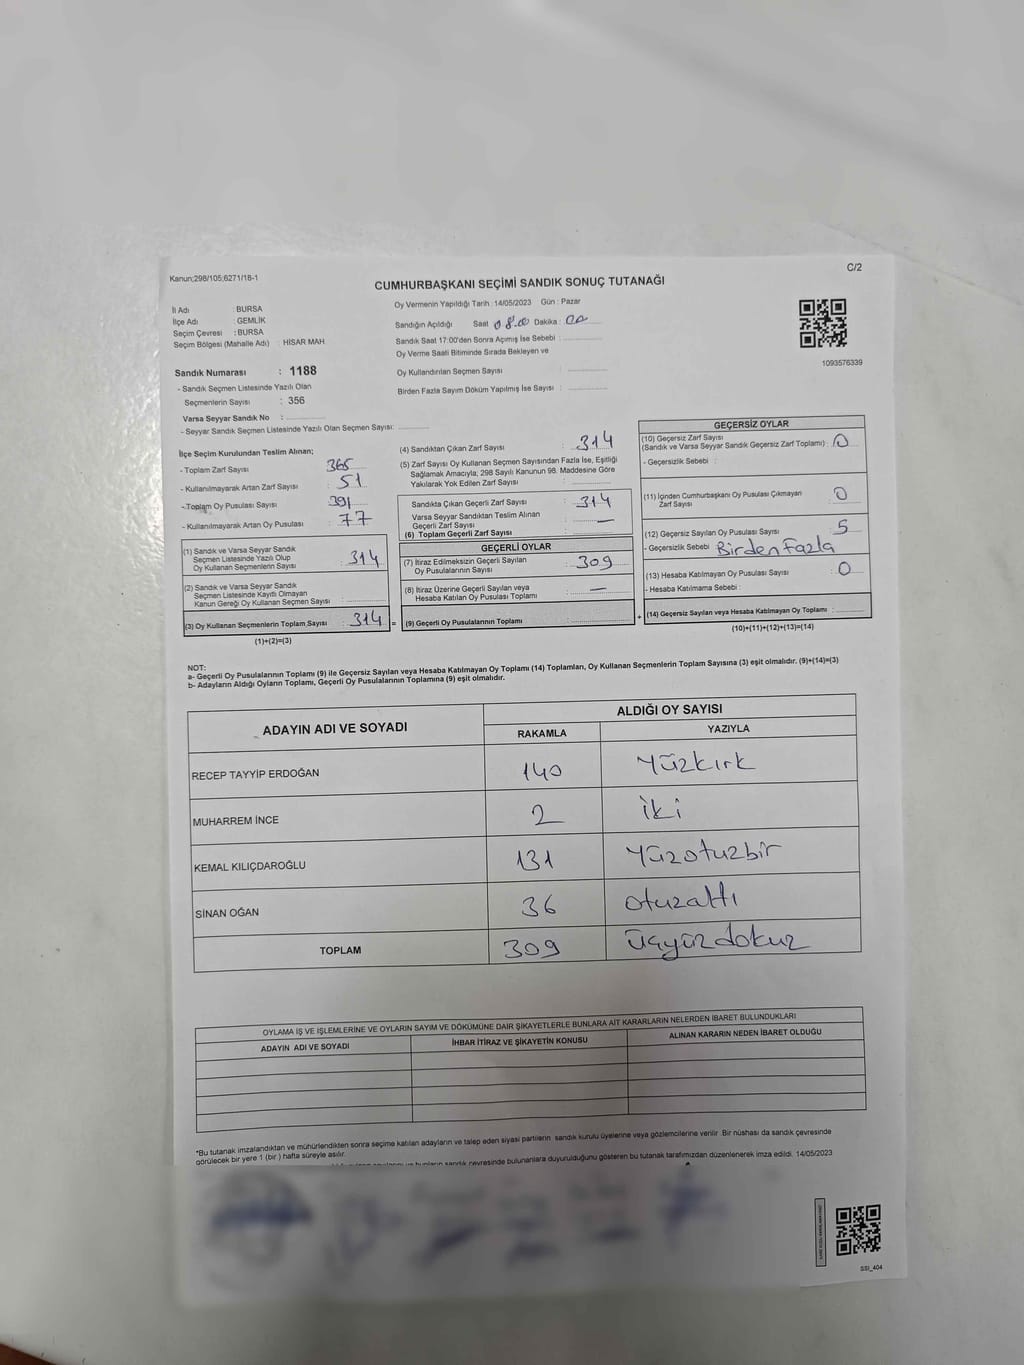 Kanun;298/105;6271/18-1
C/2
CUMHURBAŞKANI SEÇİMİ SANDIK SONUÇ TUTANAĞI
İl Adı : BURSA
İlçe Adı : GEMLİK
Seçim Çevresi : BURSA
Seçim Bölgesi (Mahalle Adı) : HİSAR MAH.
Oy Vermenin Yapıldığı Tarih :14/05/2023 Gün : Pazar
Sandığın Açıldığı Saat 08.00 Dakika :
Sandık Saat 17:00'den Sonra Açımış İse Sebebi :
Oy Verme Saati Bitiminde Sırada Bekleyen ve
Oy Kullandırılan Seçmen Sayısı :
Birden Fazla Sayım Döküm Yapılmış İse Sayısı :
1093576339
Sandık Numarası : 1188
- Sandık Seçmen Listesinde Yazılı Olan
Seçmenlerin Sayısı : 356
Varsa Seyyar Sandık No :
- Seyyar Sandık Seçmen Listesinde Yazılı Olan Seçmen Sayısı:
İlçe Seçim Kurulundan Teslim Alınan;
- Toplam Zarf Sayısı : 365
- Kullanılmayarak Artan Zarf Sayısı : 51
- Toplam Oy Pusulası Sayısı : 391
- Kullanılmayarak Artan Oy Pusulası : 77
(1) Sandık ve Varsa Seyyar Sandık
Seçmen Listesinde Yazılı Olup
Oy Kullanan Seçmenlerin Sayısı : 314
(2) Sandık ve Varsa Seyyar Sandık
Seçmen Listesinde Kayıtlı Olmayan
Kanun Gereği Oy Kullanan Seçmen Sayısı :
(3) Oy Kullanan Seçmenlerin Toplam Sayısı : 314 =
(1)+(2)=(3)
(4) Sandıktan Çıkan Zarf Sayısı : 314
(5) Zarf Sayısı Oy Kullanan Seçmen Sayısından Fazla İse, Eşitliği
Sağlamak Amacıyla; 298 Sayılı Kanunun 98. Maddesine Göre
Yakılarak Yok Edilen Zarf Sayısı :
Sandıkta Çıkan Geçerli Zarf Sayısı : 314
Varsa Seyyar Sandıktan Teslim Alınan
Geçerli Zarf Sayısı : —
(6) Toplam Geçerli Zarf Sayısı :
GEÇERLİ OYLAR
(7) İtiraz Edilmeksizin Geçerli Sayılan
Oy Pusulalarının Sayısı : 309
(8) İtiraz Üzerine Geçerli Sayılan veya
Hesaba Katılan Oy Pusulası Toplamı : —
(9) Geçerli Oy Pusulalarının Toplamı : +
GEÇERSİZ OYLAR
(10) Geçersiz Zarf Sayısı
(Sandık ve Varsa Seyyar Sandık Geçersiz Zarf Toplamı) : 0
- Geçersizlik Sebebi :
(11) İçinden Cumhurbaşkanı Oy Pusulası Çıkmayan
Zarf Sayısı : 0
(12) Geçersiz Sayılan Oy Pusulası Sayısı : 5
- Geçersizlik Sebebi : Birden Fazla
(13) Hesaba Katılmayan Oy Pusulası Sayısı : 0
- Hesaba Katılmama Sebebi :
(14) Geçersiz Sayılan veya Hesaba Katılmayan Oy Toplamı :
(10)+(11)+(12)+(13)=(14)
NOT:
a- Geçerli Oy Pusulalarının Toplamı (9) ile Geçersiz Sayılan veya Hesaba Katılmayan Oy Toplamı (14) Toplamları, Oy Kullanan Seçmenlerin Toplam Sayısına (3) eşit olmalıdır. (9)+(14)=(3)
b- Adayların Aldığı Oyların Toplamı, Geçerli Oy Pusulalarının Toplamına (9) eşit olmalıdır.
ADAYIN ADI VE SOYADI ALDIĞI OY SAYISI
RAKAMLA YAZIYLA
RECEP TAYYİP ERDOĞAN 140 Yüzkırk
MUHARREM İNCE 2 iki
KEMAL KILIÇDAROĞLU 131 Yüzotuzbir
SİNAN OĞAN 36 otuzaltı
TOPLAM 309 üçyüzdokuz
OYLAMA İŞ VE İŞLEMLERİNE VE OYLARIN SAYIM VE DÖKÜMÜNE DAİR ŞİKAYETLERLE BUNLARA AİT KARARLARIN NELERDEN İBARET BULUNDUKLARI
ADAYIN ADI VE SOYADI İHBAR İTİRAZ VE ŞİKAYETİN KONUSU ALINAN KARARIN NEDEN İBARET OLDUĞU
*Bu tutanak imzalandıktan ve mühürlendikten sonra seçime katılan adayların ve talep eden siyasi partilerin sandık kurulu üyelerine veya gözlemcilerine verilir. Bir nüshası da sandık çevresinde
görülecek bir yere 1 (bir ) hafta süreyle asılır.
sandık çevresinde bulunanlara duyurulduğunu gösteren bu tutanak tarafımızdan düzenlenerek imza edildi. 14/05/2023
SSI_404